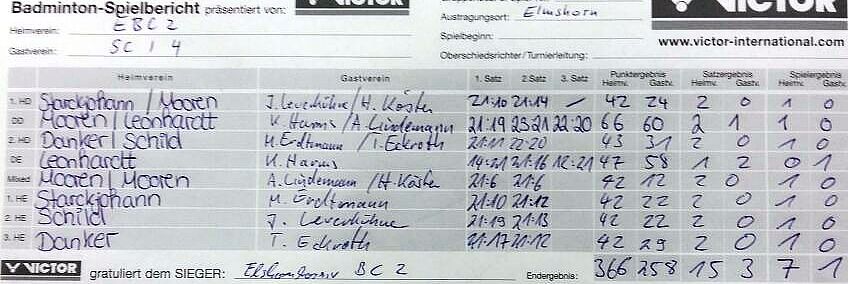 Badminton-Spielbericht präsentiert von: VICTOR
Heimverein: EBC 2
Gastverein: SC I 4
Austragungsort: Elmshorn
Spielbeginn:
Oberschiedsrichter/Turnierleitung:
www.victor-international.com
Heimverein Gastverein 1. Satz 2. Satz 3. Satz Punktergebnis Heimv. Gastv. Satzergebnis Heimv. Gastv. Spielergebnis Heimv. Gastv.
1. HD Starckjohann / Mooren J. Leverkühne / H. Köster 21:10 21:14 / 42 24 2 0 1 0
DD Mooren / Leonhardt K. Harms / A. Lindemann 21:19 23:21 22:20 66 60 2 1 1 0
2. HD Danker / Schild M. Erdtmann / T. Eckroth 21:11 22:20 43 31 2 0 1 0
DE Leonhardt K. Harms 14:21 21:16 12:21 47 58 1 2 0 1
Mixed Mooren / Mooren A. Lindemann / H. Köster 21:6 21:6 42 12 2 0 1 0
1. HE Starckjohann M. Erdtmann 21:10 21:12 42 22 2 0 1 0
2. HE Schild J. Leverkühne 21:19 21:13 42 22 2 0 1 0
3. HE Danker T. Eckroth 21:17 21:12 42 29 2 0 1 0
VICTOR gratuliert dem SIEGER: BC 2 Endergebnis: 366 258 15 3 7 1